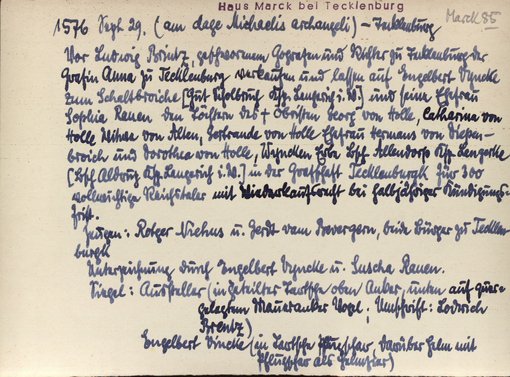 Haus Marck bei Tecklenburg
Marck 85
1576 Sept. 29. (am dage Michaelis archangeli) – Tecklenburg
Vor Ludwig Brintz, geschworenem Gografen und Richter zu Tecklenburg der
Gräfin Anna zu Tecklenburg verkaufen und lassen auf Engelbert Vyncke
zum Schaltbroiche [Gut Kspl. Lengerich i. W.] und seine Ehefrau
Sophia Rauen den Töchtern des † Obristen Georg von Holle, Catharina von
Holle Witwe von Alten, Gertrande von Holle Ehefrau Hermans von Diepen-
broich und Dorothea von Holle, Wyncken Erbe Bsch. Allendorp Ksp. Lengerke
[Bsch. Aldrup Ksp. Lengerich i. W.] in der Grafschaft Tecklenburgk für 300
vollwichtige Reichstaler mit Wiederkaufsrecht bei halbjähriger Kündigungs-
frist.
Zeugen: Rotger Niehus u. Gerdt vam Drevergern, beide Bürger zu Tecklen-
burgk
Unterzeichnung durch Engelbert Vyncke u. Suscha Rauen.
Siegel: Aussteller (in geteilter Tartsche oben Anker, unten auf quer-
gelegtem Maueranker Vogel; Umschrift: Lodwich
Brentz)
Engelbert Vincke (in Tartsche Pflugschar, darüber Helm mit
Pflugschar als Helmzier)